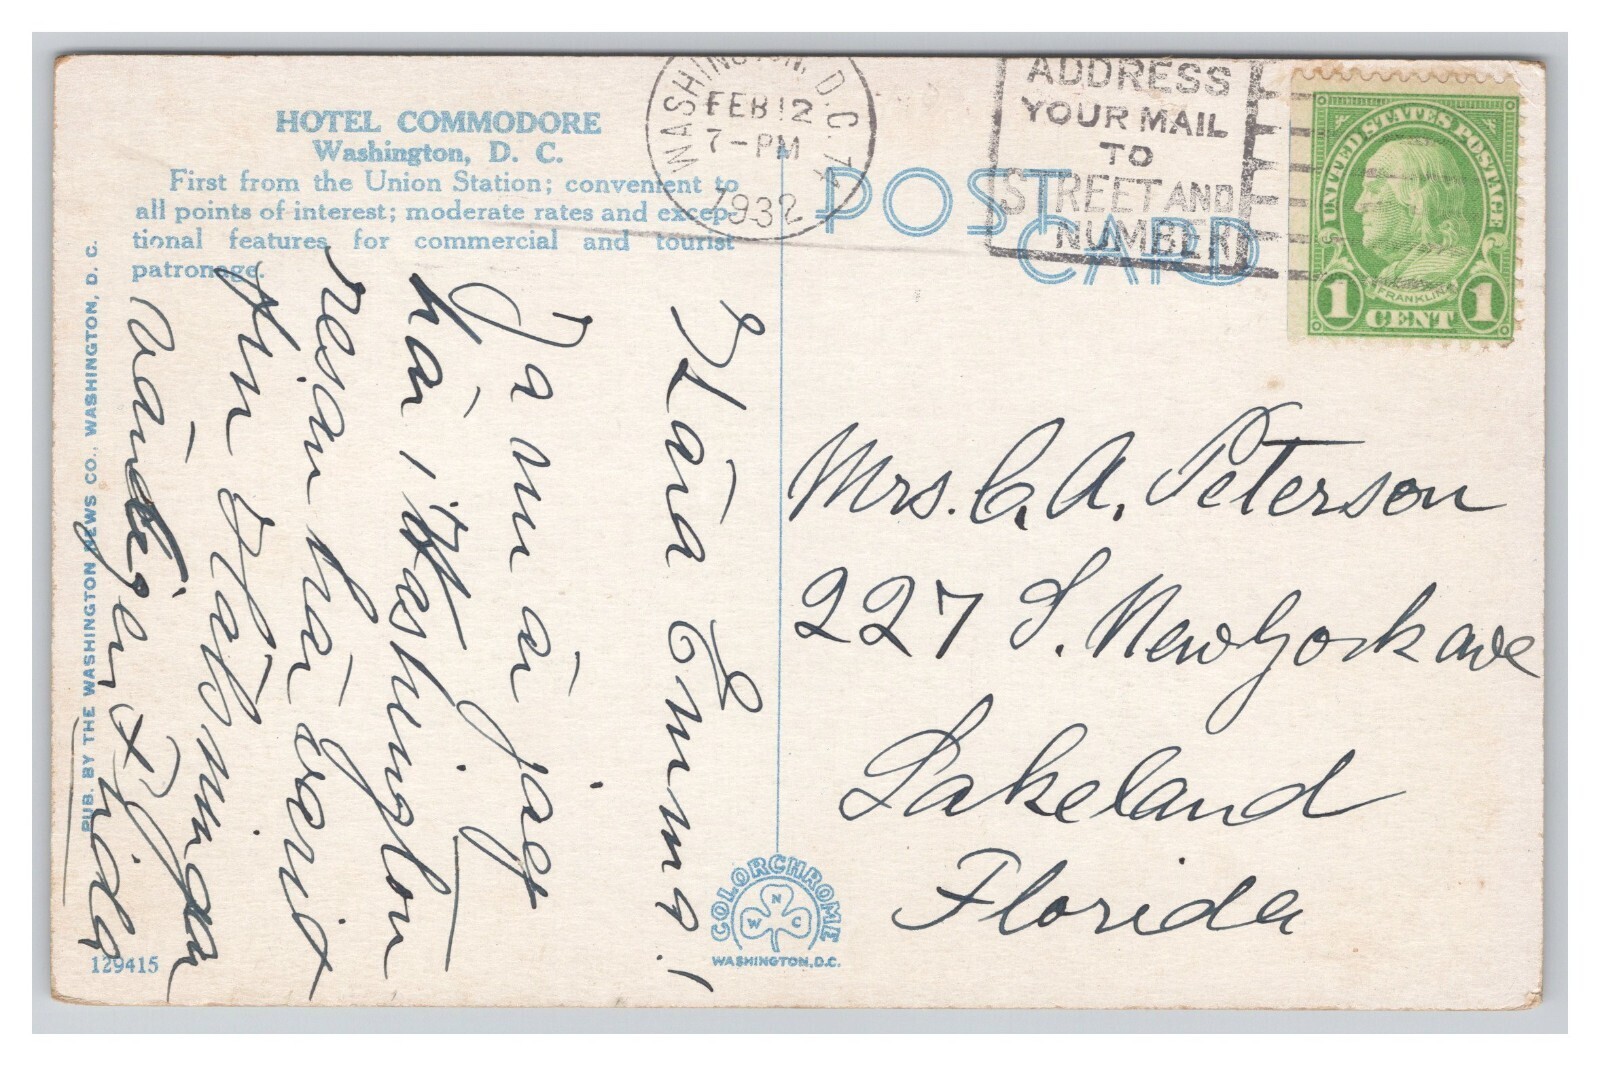 HOTEL COMMODORE
Washington, D. C.
First from the Union Station; convenient to
all points of interest; moderate rates and excep-
tional features for commercial and tourist
patronage.
PUB. BY THE WASHINGTON NEWS CO., WASHINGTON, D. C.
129415
WASHINGTON, D.C.
FEB 12
7-PM
1932
ADDRESS
YOUR MAIL
TO
STREET AND
NUMBER
POST
CARD
UNITED STATES POSTAGE
FRANKLIN
1 CENT 1
Kära Emma!
Ja nu är jag
här i Washington
resan har varit
fin
Vänligen
Mrs. C. A. Peterson
227 S. New York ave
Lakeland
Florida
COLORCHROME
W N C
WASHINGTON, D.C.